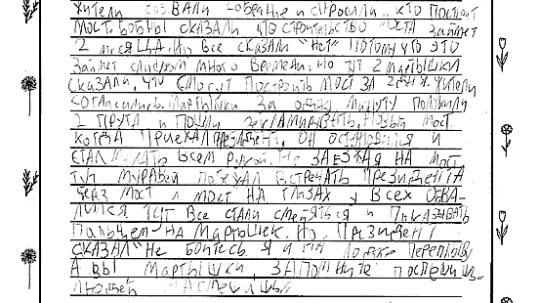 жители созвали собрание и спросили, кто построит
мост. Бобры сказали что строительство моста займет
2 месяца. Но все сказали "нет" потому что это
займет слишком много времени. Но тут 2 мартышки
сказали, что смогут построить мост за дня. Жители
согласились. Мартышки за одну минуту положили
2 прута и пошли новый мост
когда приехал президент, он остановился и
стал всем рукой. Не заезжая на мост
тут муравей поехал встречать президента
через мост и мост на глазах у всех обва-
лился. Тут все стали смеяться и показывать
пальцем на мартышек. Но президент
сказал "Не бойтесь я и на лодке переплыву
А вы мартышки, запомните: поспешишь-
людей насмешишь